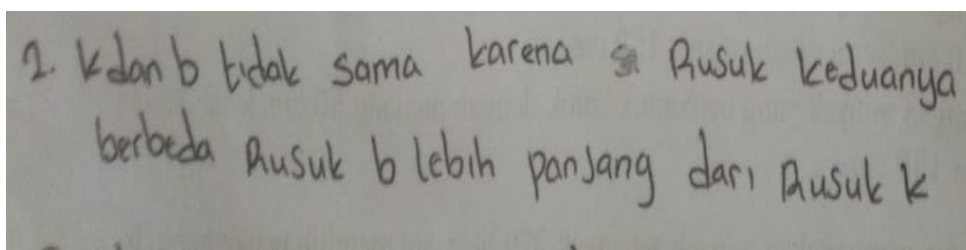 2. K dan b tidak sama karena Rusuk keduanya
berbeda Rusuk b lebih panjang dari Rusuk k